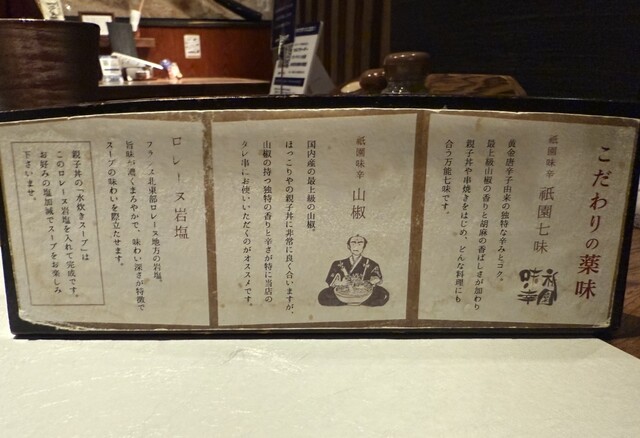 こだわりの薬味
祇園味幸
祇園七味
黄金唐辛子由来の独特な辛みとコク。
最上級山椒の香りと胡麻の香ばしさが加わり
親子丼や串焼きをはじめ、どんな料理にも
合う万能七味です。
祇園味幸
祇園味幸
山椒
国内産の最上級の山椒。
ほっこりやの親子丼に非常に良く合いますが、
山椒の持つ独特の香りと辛さが特に当店の
タレ串にお使いいただくのがオススメです。
ロレーヌ岩塩
フランス北東部ロレーヌ地方の岩塩。
旨味が濃くまろやかで、味わい深さが特徴で
スープの味わいを際立たせます。
親子丼の「水炊きスープ」は
このロレーヌ岩塩を入れて完成です。
お好みの塩加減でスープをお楽しみ
下さいませ。